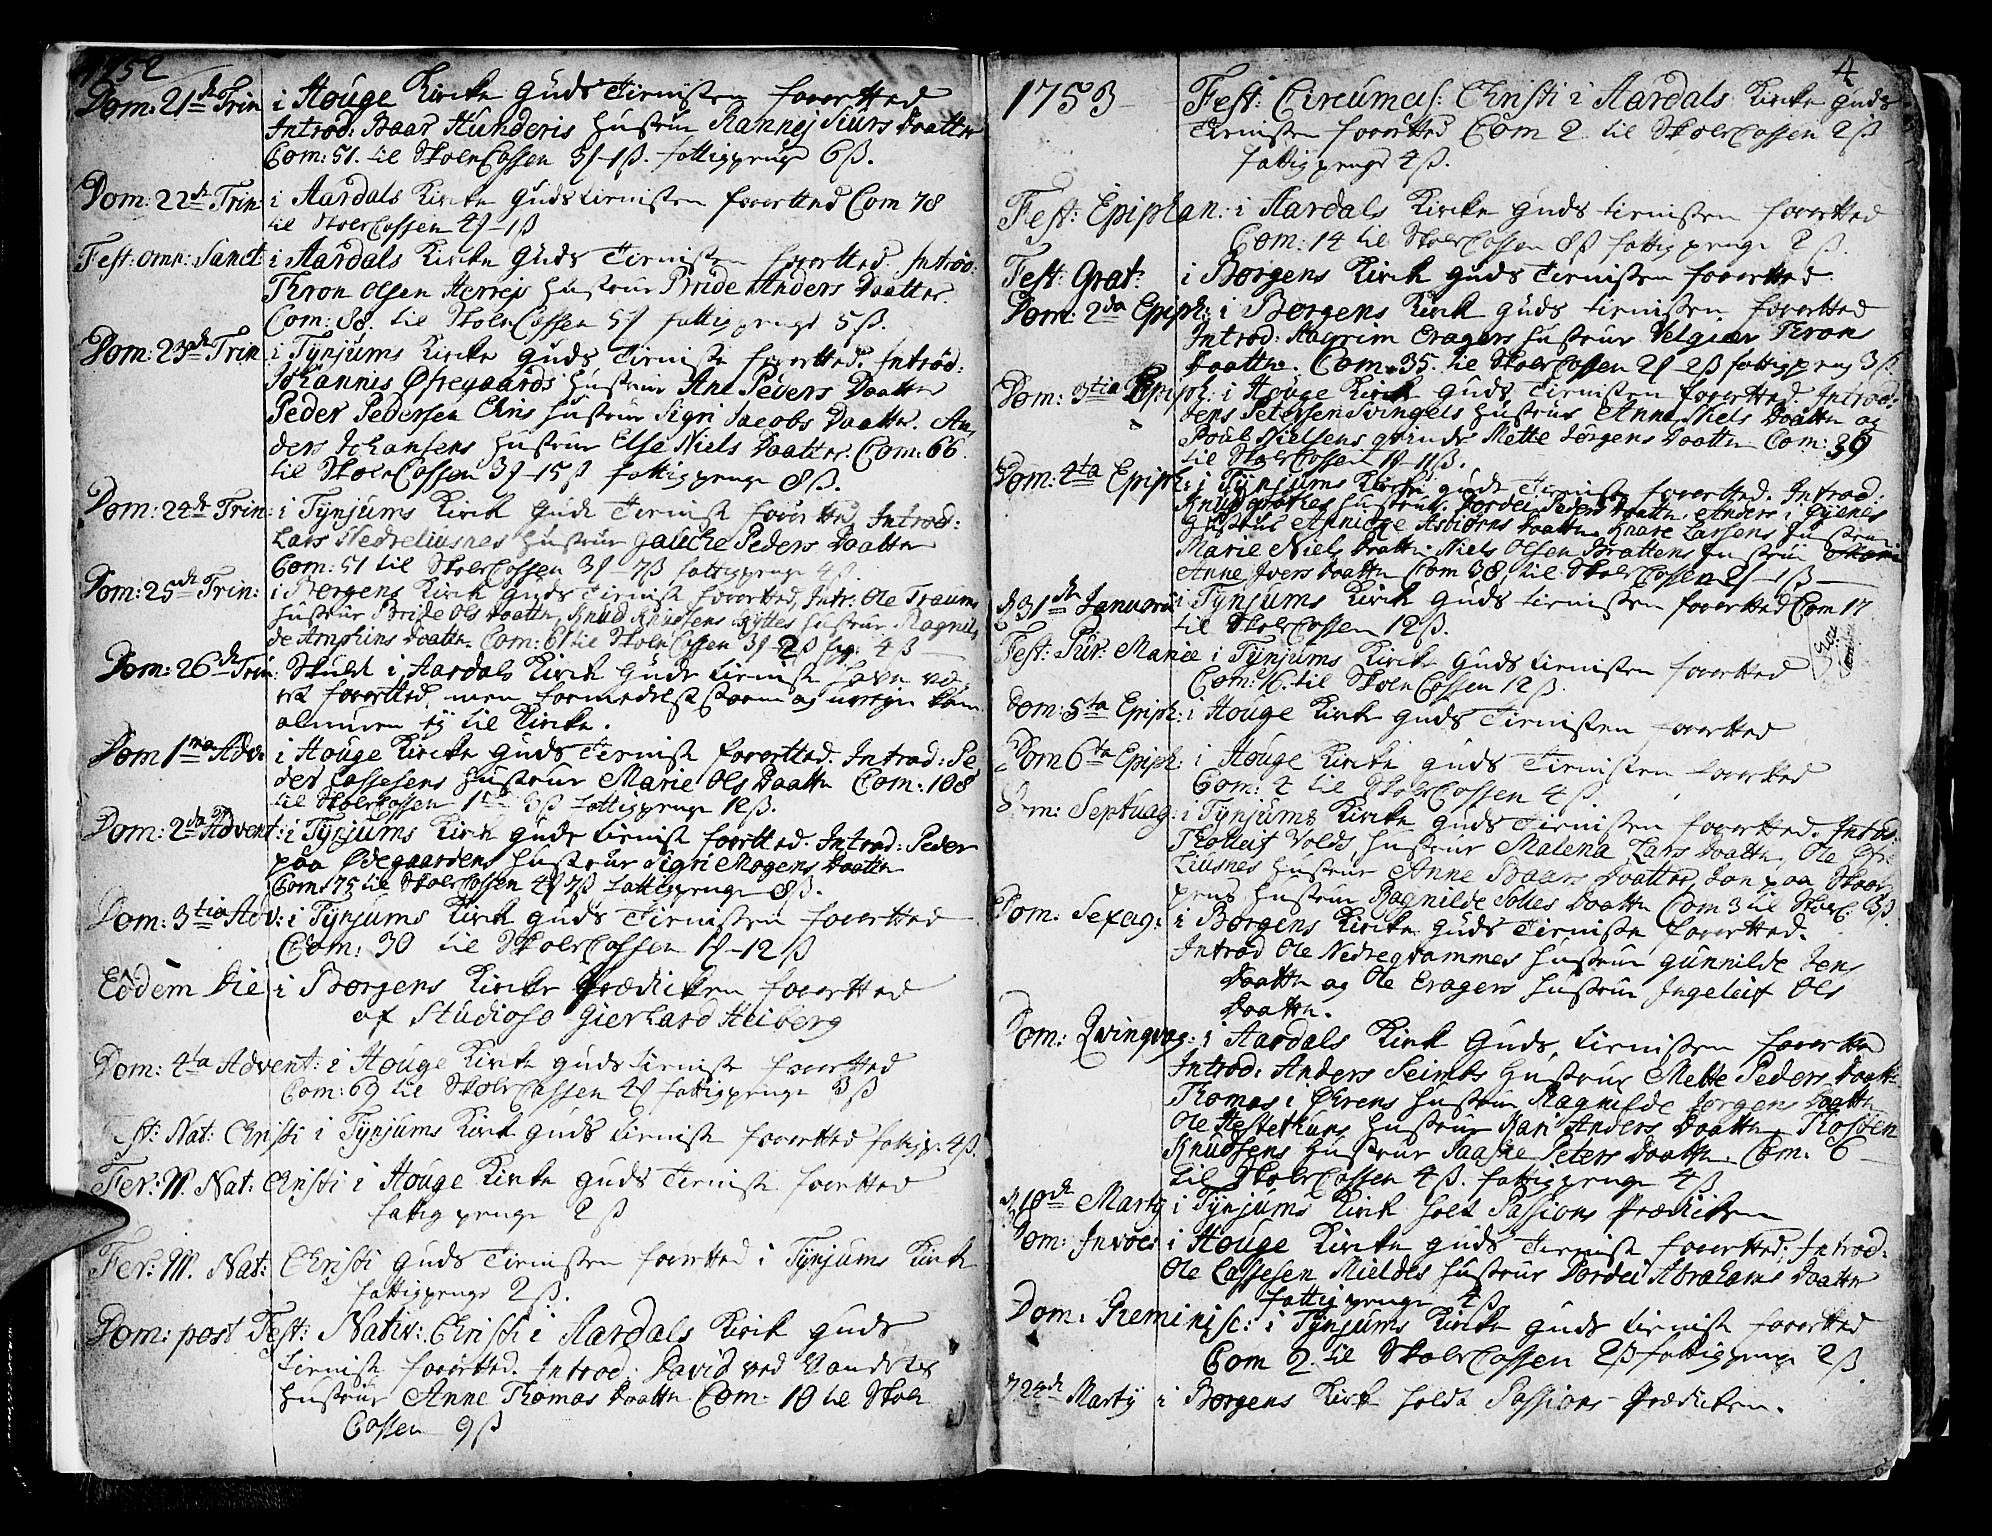 1752
Dom: 21de Trin i Houge Kircke Guds Tienisten forretted
Introd: Baar Hunderis Hustrue Rannej Siurs Daatter
Com: 51. til Skole Cassen 3 -1ß. fattigpenge 6ß.
Dom: 22de Trin: i Aardals Kircke Guds tienisten forretted Com 78
til Skole Cassen 4 -1ß
Fest: omn: Sanct i Aardals Kircke Guds Tienisten forretted. Introd:
Thron Olsen Hustrue Bride Anders Daatter.
Com: 88. til Skole Cassen 5 fattigpenge 5ß.
Dom: 23de Trin i Tynjums Kircke Guds Tieniste forretted. Introd:
Johannis Øfregaards Hustrue Ane Peders Daatter
Peder Pedersen Hustrue Sigri Jacobs Daatter. An-
ders Johansens Hustrue Else Niels Daatter. Com: 66.
til Skole Cassen 3 -15ß fattigpenge 8ß.
Dom: 24de Trin: i Tynjums Kirck Guds Tieniste forretted, Introd:
Lars Nedreliusnes Hustrue Peders Daatter
Com: 51 til Skole Cassen 3 -7ß fattigpenge 4ß.
Dom: 25de Trin: i Borgens Kirck Guds Tieniste forretted, Intr: Ole
Hustrue Bride Ols Daatter, Knud Knudsens Hustrue Ragnil
de Daatter. Com: 61 til Skole Cassen 3 -2ß 4ß
Dom: 26de Trin: Skuld i Aardals Kirck Guds tieniste hafve væ-
ret forretted, men formedelst storm og uveyr kom
almuen ey til Kircke.
Dom 1ma Adv: i Houge Kircke Guds Tieniste forretted. Introd: Pe
der Lassesens Hustrue Marie Ols Daatter Com: 108
til Skole Cassen fattigpenge 12ß.
Dom: 2da Advent: i Tynjums Kirck Guds tieniste forretted. Introd: Peder
paa Ødegaardens Hustrue Sigri Mogens Daatter
Com: 75 til Skole Cassen 4 7ß fattigpenge 8ß.
Dom: 3tia Adv: i Tynjums Kirck Guds Tienisten forretted
Com: 30 til Skole Cassen 1 -12ß
Eodem Die i Borgens Kircke Prædicken forretted
af Studioso Gierhard Heiberg
Dom: 4ta Advent: i Houge Kirck Guds tieniste forretted
Com: 69 til Skole Cassen 4 fattigpenge 3ß
Fest: Nat: Christi i Tynjums Kirck Guds tieniste forretted fattigp: 4ß.
Fer: II. Nat: Christi i Houge Kircke Guds Tieniste forretted
fattig penge 2ß
Fer: III. Nat: Christi Guds Tienisten forretted i Tynjums Kirck
fattigpenge 2ß.
Dom: post Fest: Nativ: Christi i Aardals Kirck Guds
tieniste forretted. Introd: David ved Vandet
Hustrue Anne Thomas Daatter Com: 10 til Skole
Cassen 9ß
4
1753 Fest: Circumcis: Christi i Aardals Kircke Guds
Tienisten forretted Com 2 til Skole Cassen 2ß
fattigpenge 4ß.
Fest: Epiphan: i Aardals Kircke Guds tienisten forretted
Com: 14 til Skole Cassen 8ß fattigpenge 2ß.
Fest: Grat: i Borgens Kirck Guds Tienisten forretted
Dom: 2da Epiph: i Borgens Kirck Guds tienisten forretted
Introd: Eragers Hustrue Throns
Daatter. Com: 35. til Skole Cassen 2 -2ß fattigpeng 3ß
Dom: 3tia Epiph: i Houge Kirck Guds Tienisten forretted. Introd:
Jens Petersen Svingels Hustrue Anne Niels Daatter og
Poul Nielsens qvinde Mette Jørgens Daatter Com: 39
til Skole Cassen 1 -11ß.
Dom: 4ta Epiph: i Tynjums Kircke Guds Tieniste forretted. Introd:
Knud Hustrue Dordei Peders Daatter, Anders i Øyenes
Hustrue Asbiørns Daatter, Knare Larsens Hustrue
Marie Niels Daatter, Niels Olsen Brattens Hustrue
Anne Ivers Daatter Com 38, til Skole Cassen 2 -1ß
d. 31de Januarii i Tynjums Kirck Guds tienisten forretted Com 17
til Skole Cassen 12ß.
Fest: Pur: Mariæ i Tynjums Kircke Guds tienisten forretted
Com: 16. til Skole Cassen 12ß.
Dom: 5ta Epiph: i Houge Kirck Guds Tienisten forretted
Dom 6ta Epiph: i Houge Kircke Guds Tienisten forretted
Com: 4 til Skole Cassen 4ß.
Dom: Septuag: i Tynjums Kircke Guds Tienisten forretted. Introd:
Tholleif Volds Hustrue Malena Lars Daatter, Ole Øfre
Liusnes Hustrue Anne Baars Daatter, Jon paa
Hustrue Ragnilde Daatter Com 3 til Skole C: 3ß
Dom: Sexag: i Borgens Kircke Guds Tieniste forretted.
Introd Ole Nedregrammes Hustrue Gunnilde Jens
Daatter og Ole Eragers Hustrue Ingeleif Ols
Daatter.
Dom: Qvinqvag: i Aardals Kirck Guds tienisten forretted
Introd: Anders Seimbs Hustrue Mette Peders Daatter
Thomas i Ørens Hustrue Ragnilde Jørgens Daatter
Ole Hustrue Kari Anders Daatter,
Knudsens Hustrue Peters Daatter. Com: 6
til Skole Cassen 4ß. fattigpenge 4ß
Marty i Tynjums Kirck holt Passions Prædicken
Dom: Invoc: i Houge Kircke Guds Tieniste forretted; Introd:
Ole Lassesen Mieldes Hustrue Dordei Abrahams Daatter
fattigpenge 4ß
Dom: Reminisc: i Tynjums Kircke Guds tieniste forretted
Com 2. til Skole Cassen 2ß fattigpenge 2ß
d 24de Marty i Borgens Kirck holdt Passions-Prædicken.